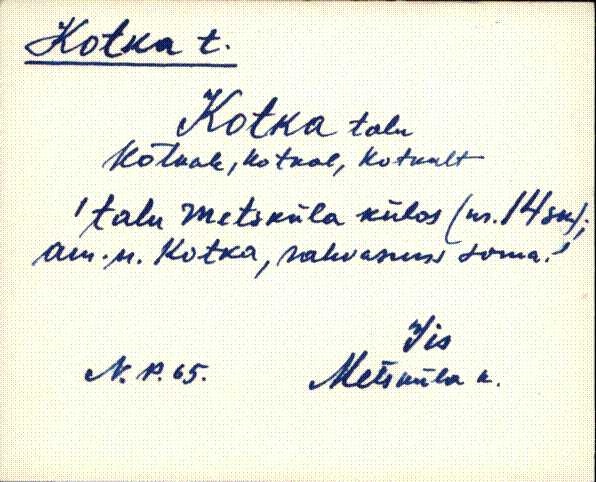 Kotka t.
Kotka talu
kotkale, kotkal, kotkalt
'talu Metsküla külas (nr. 14 sn);
am.n. Kotka, rahvasuus soma.'
Jis
N. P. 65. Metsküla k.